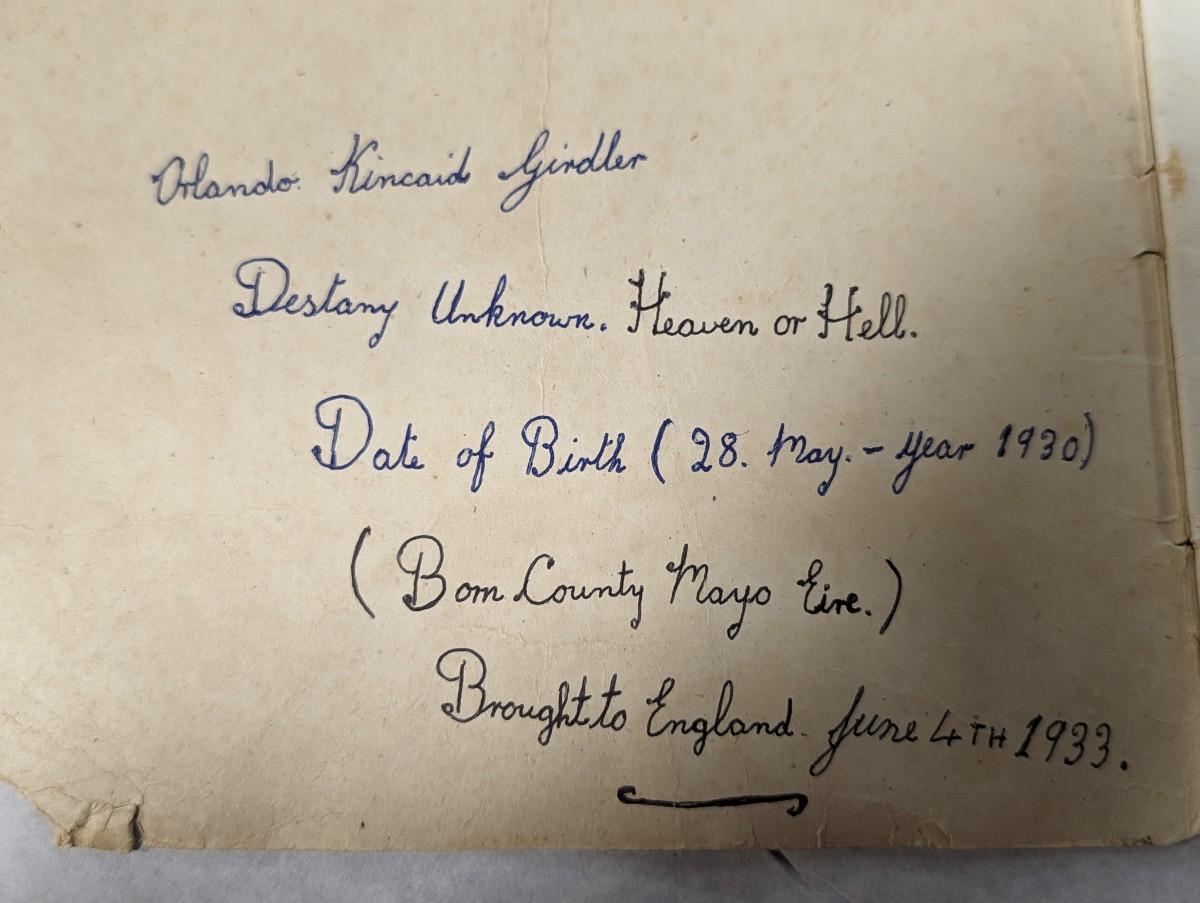 Orlando. Kincaid Girdler
Destany Unknown. Heaven or Hell.
Date of Birth ( 28. May. - year 1930)
( Born County Mayo Eire.)
Brought to England. June 4TH 1933.